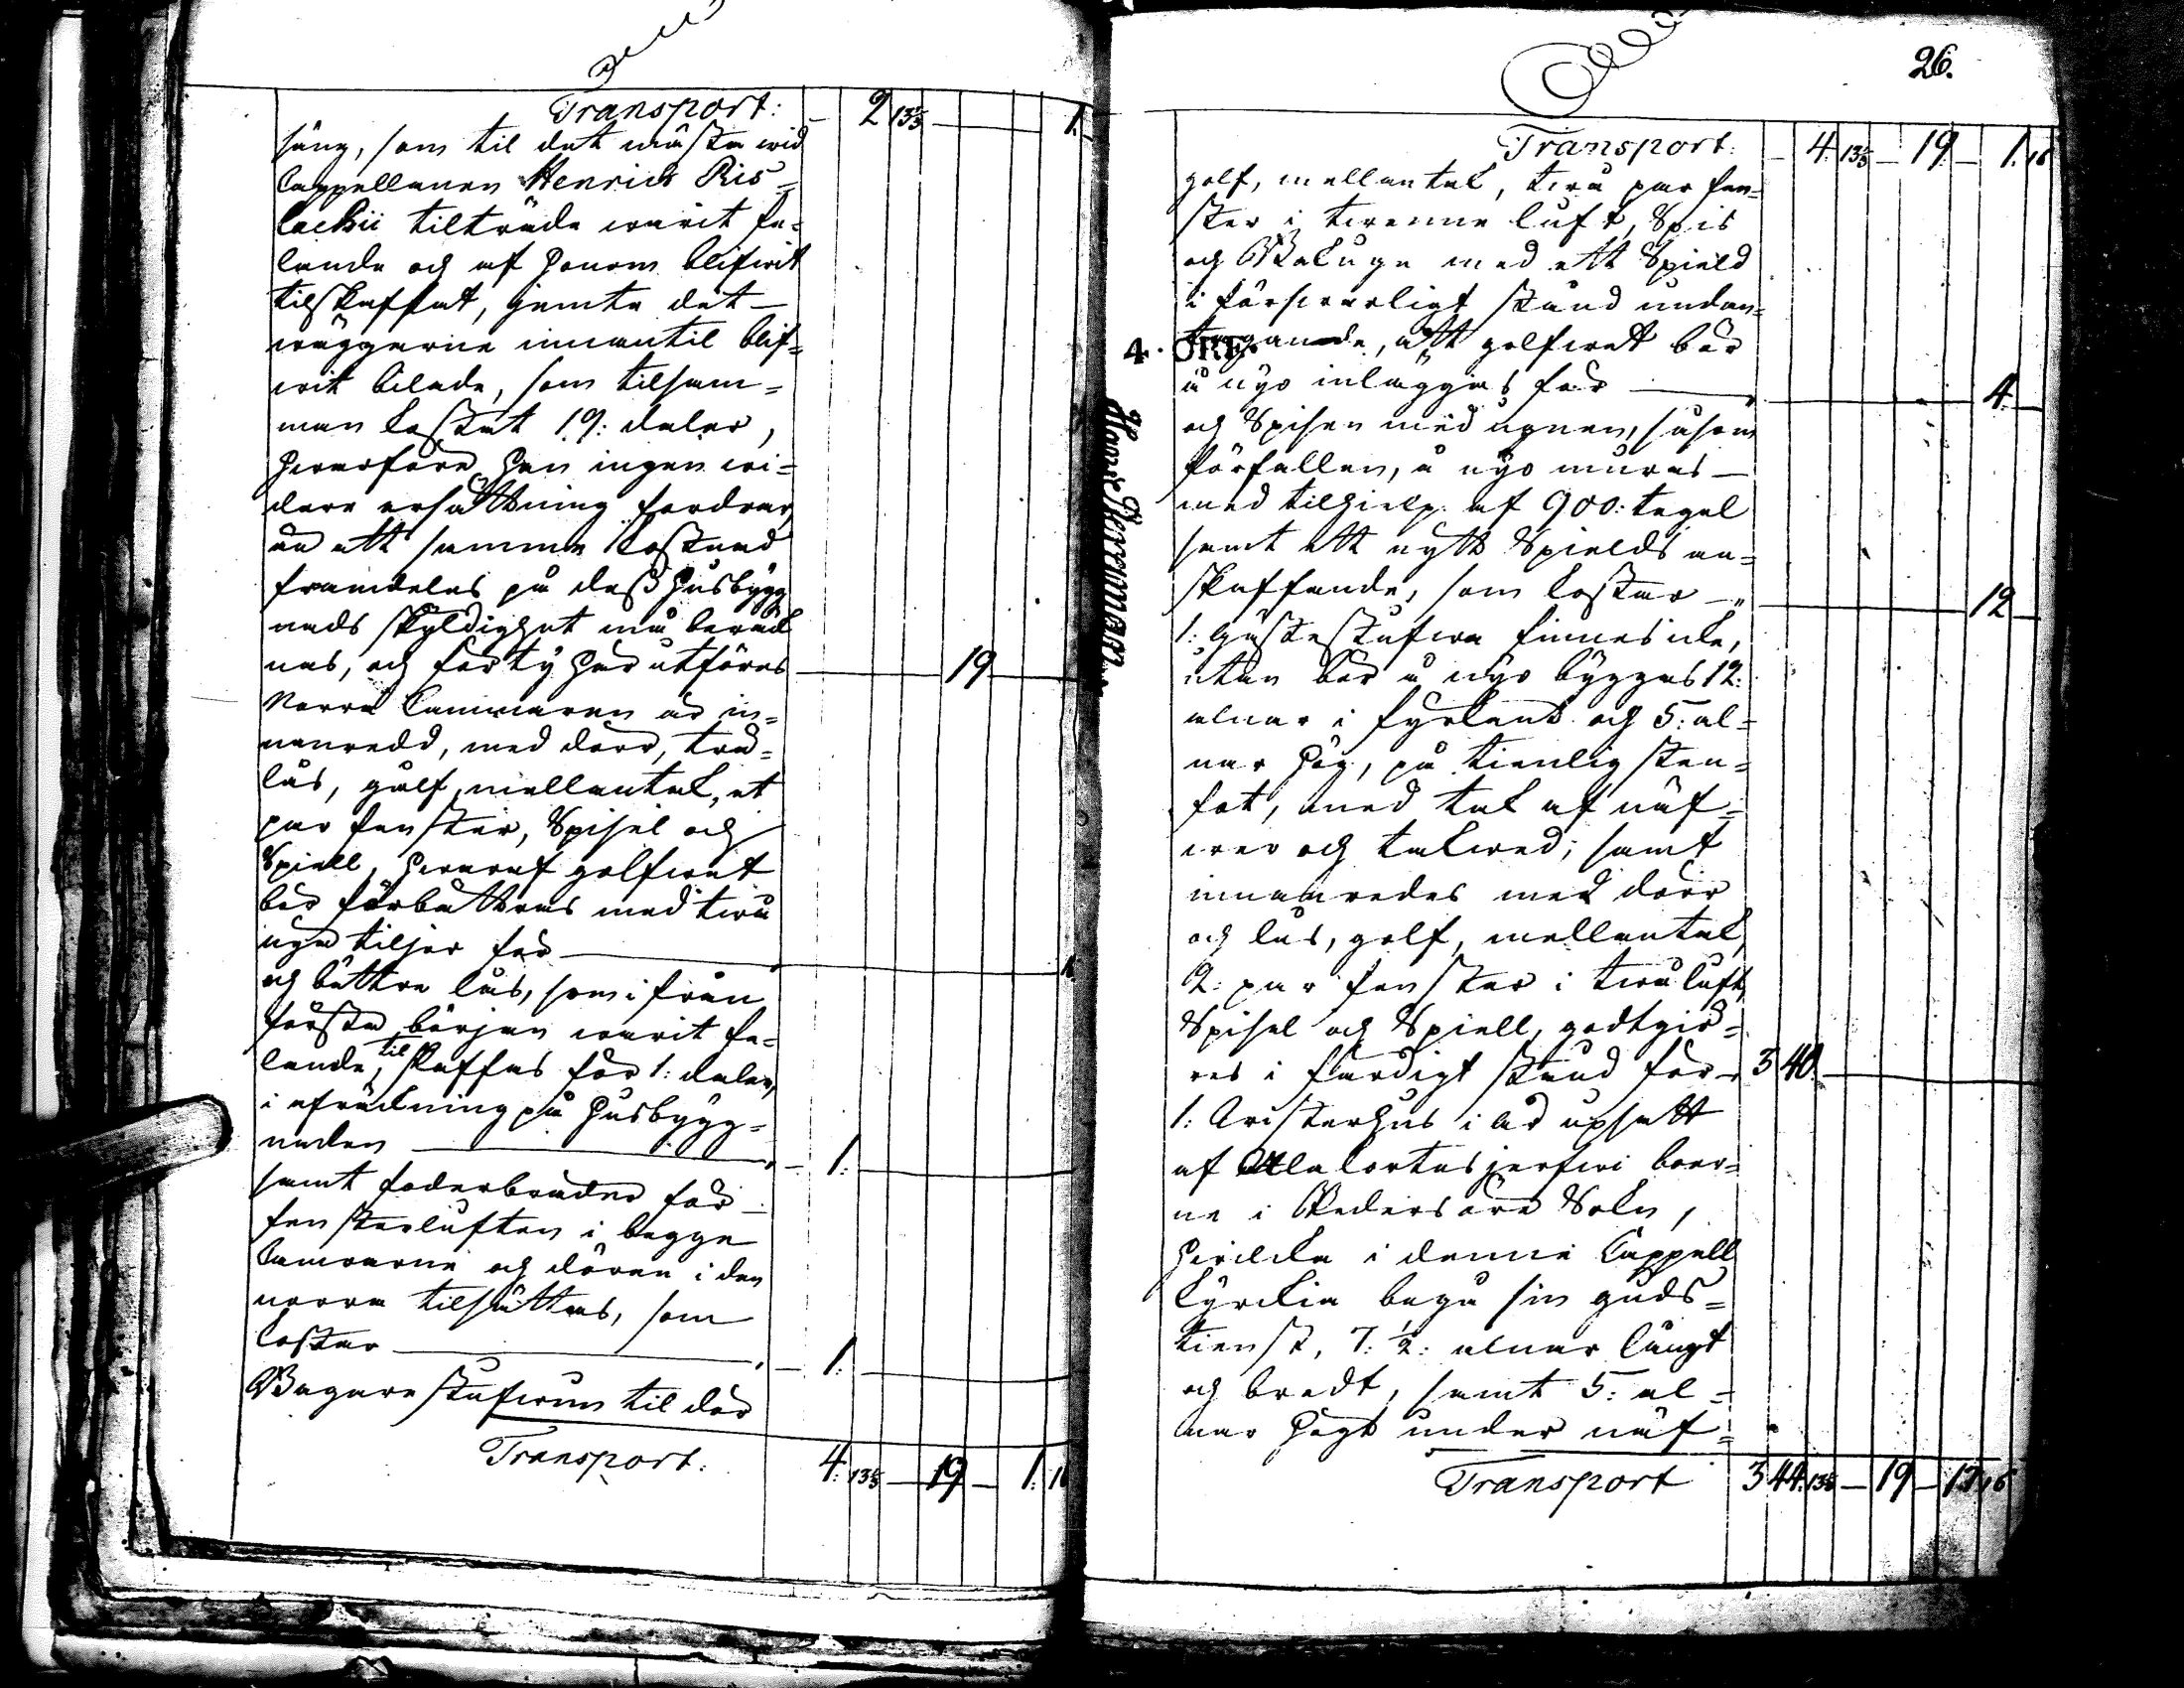 Transport: – 2 13⅓ – 1.
säng, som til det mästa wid
Cappellanen Henrics Ris=
lachii tilträde warit fe=
lande och af honom blifwit
tilskaffat, jemte det
wäggarne innantil blif=
wit bilade, som tilsam=
man kostat 19: daler,
hwarföre han ingen wi=
dare ersättning fordrar,
än att samma kostnad
framdeles på dess husbygg
nads skyldighet må beräk
nas, och förty här utföres — 19
Norra Cammaren är in=
nanredd, med dörr, träd=
lås, gålf, mellantak, et
par fenster, Spisel och
Spiell, hwaraf golfwet
bör förbättras med twå
nya tiljor för — 1
och bättre lås, som ifrån
första början warit fe=
lande, til skaffas för 1: daler,
i afräkning på husbygg=
naden — 1:
samt foderbräder för
fensterluften i bägge
Camrarne och dören i den
norra tilsättas, som
kostar — 1:
Bagare stufwun til dör
Transport: 4: 13⅓ – 19 – 1: 16
26.
Transport: – 4: 13⅓ – 19 – 1. 16
golf, mellantak, twå par fen=
ster i twenne luft, Spis
och Bakugn med ett Spield
i förswarligt stånd undan=
tagande, att golfwet bör
4. ÖRE.
å nyo inläggas för — 4.
och Spisen med ugnen, såsom
förfallen, å nyo muras
med tilhielp af 900: tegel
samt ett nytt Spields an=
skaffande, som kostar — 12
1: Gästestufwa finnes icke,
utan bör å nyo byggas 12:
alnar i fyrkant och 5: al=
nar hög, på tienlig sten=
fot, med tak af näf=
wer och takwed; samt
innanredes med dörr
och lås, golf, mellantak,
2: par fenster i twå luft,
Spisel och Spiell, godtgiö=
res i färdigt stånd för — 340.
1: Härbärge i är upsatt
af Ala Kortesjerfwi boer=
ne i Pedersöre Sokn,
hwilcka i denne Cappell
Kyrckia begå sin guds=
tienst, 7: ½: alnar långt
och bredt, samt 5: al=
nar högt under näf=
Transport 344. 13⅓ – 19 – 17. 16